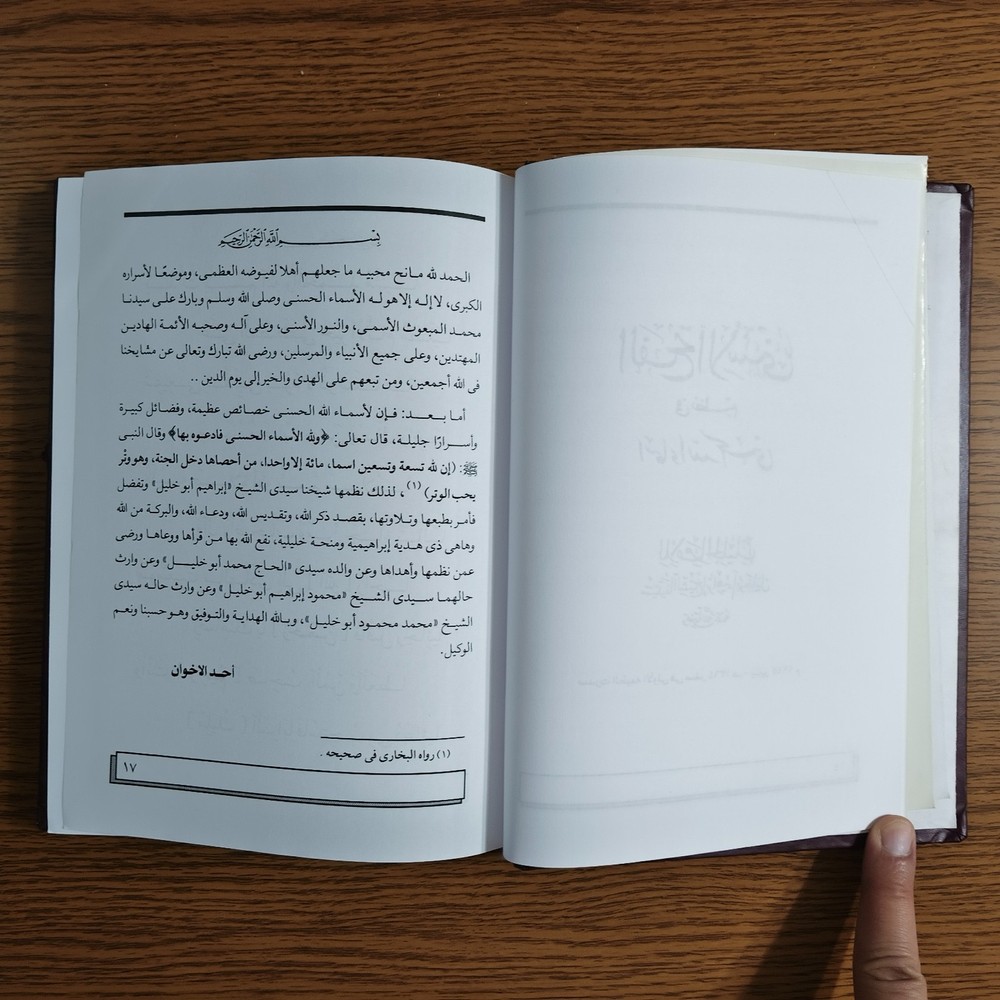 بسم الله الرحمن الرحيم
الحمد لله مانح محبيه ما جعلهم أهلا لفيوضه العظمى، وموضعًا لأسراره
الكبرى، لا إله إلا هو له الأسماء الحسنى وصلى الله وسلم وبارك على سيدنا
محمد المبعوث الأسمى، والنور الأسنى، وعلى آله وصحبه الأئمة الهادين
المهتدين، وعلى جميع الأنبياء والمرسلين، ورضى الله تبارك وتعالى عن مشايخنا
فى الله أجمعين، ومن تبعهم على الهدى والخير إلى يوم الدين ..
أما بعد: فإن لأسماء الله الحسنى خصائص عظيمة، وفضائل كبيرة
وأسرارًا جليلة، قال تعالى: ﴿ولله الأسماء الحسنى فادعوه بها﴾ وقال النبى
ﷺ: (إن لله تسعة وتسعين اسما، مائة إلا واحدا، من أحصاها دخل الجنة، وهو وتْر
يحب الوتر) (١)، لذلك نظمها شيخنا سيدى الشيخ «إبراهيم أبو خليل» وتفضل
فأمر بطبعها وتلاوتها، بقصد ذكر الله، وتقديس الله، ودعاء الله، والبركة من الله
وهاهى ذى هدية إبراهيمية ومنحة خليلية، نفع الله بها من قرأها ووعاها ورضى
عمن نظمها وأهداها وعن والده سيدى «الحاج محمد أبو خليل» وعن وارث
حالهما سيدى الشيخ «محمود إبراهيم أبو خليل» وعن وارث حاله سيدى
الشيخ «محمد محمود أبو خليل»، وبالله الهداية والتوفيق وهو حسبنا ونعم
الوكيل.
أحد الاخوان
(١) رواه البخارى فى صحيحه .
١٧